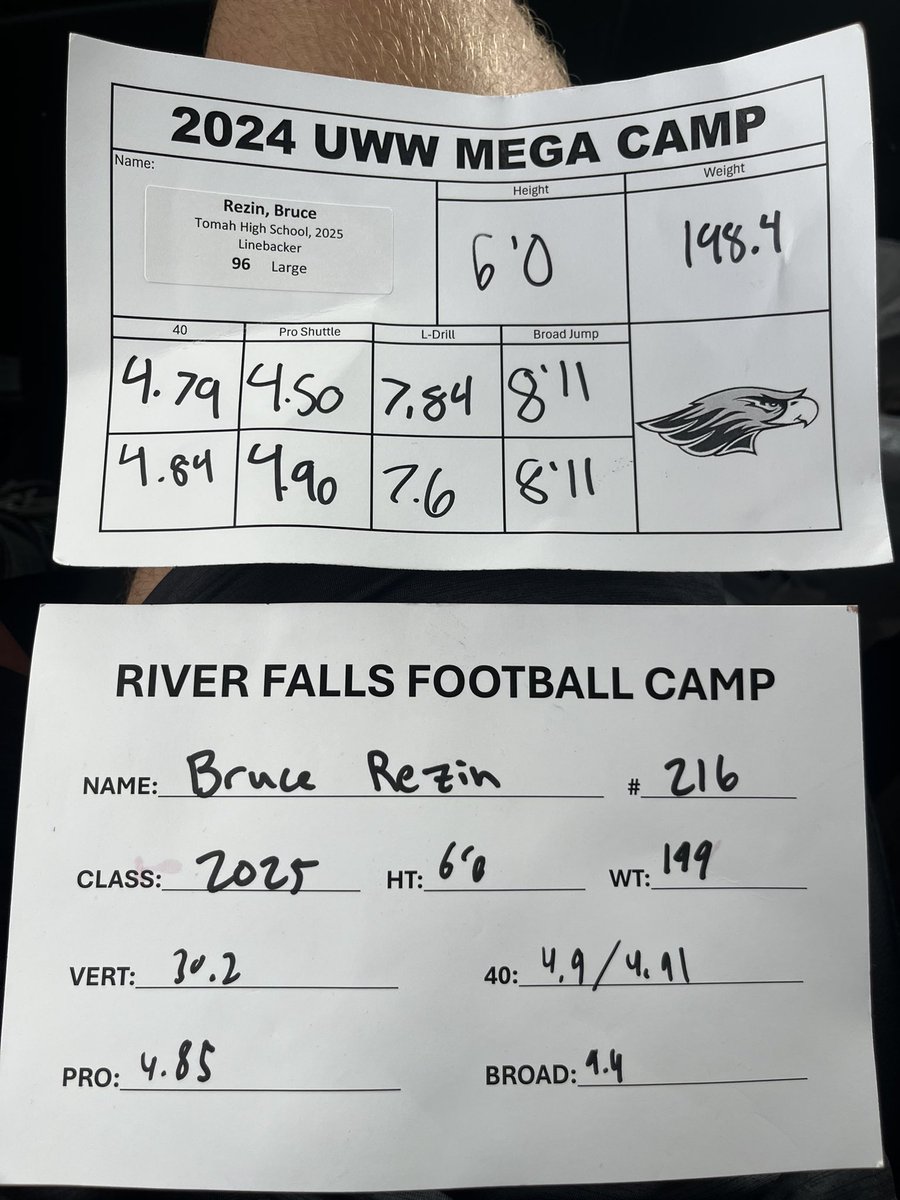 2024 UWW MEGA CAMP
Name:
Height
Weight
Rezin, Bruce
Tomah High School, 2025
Linebacker
96 Large
6'0
198.4
40 Pro Shuttle L-Drill Broad Jump
4.79 4.50 7.84 8'11
4.84 4.90 7.6 8'11
RIVER FALLS FOOTBALL CAMP
NAME: Bruce Rezin # 216
CLASS: 2025 HT: 6'0 WT: 199
VERT: 30.2 40: 4.9/4.91
PRO: 4.85 BROAD: 9.4